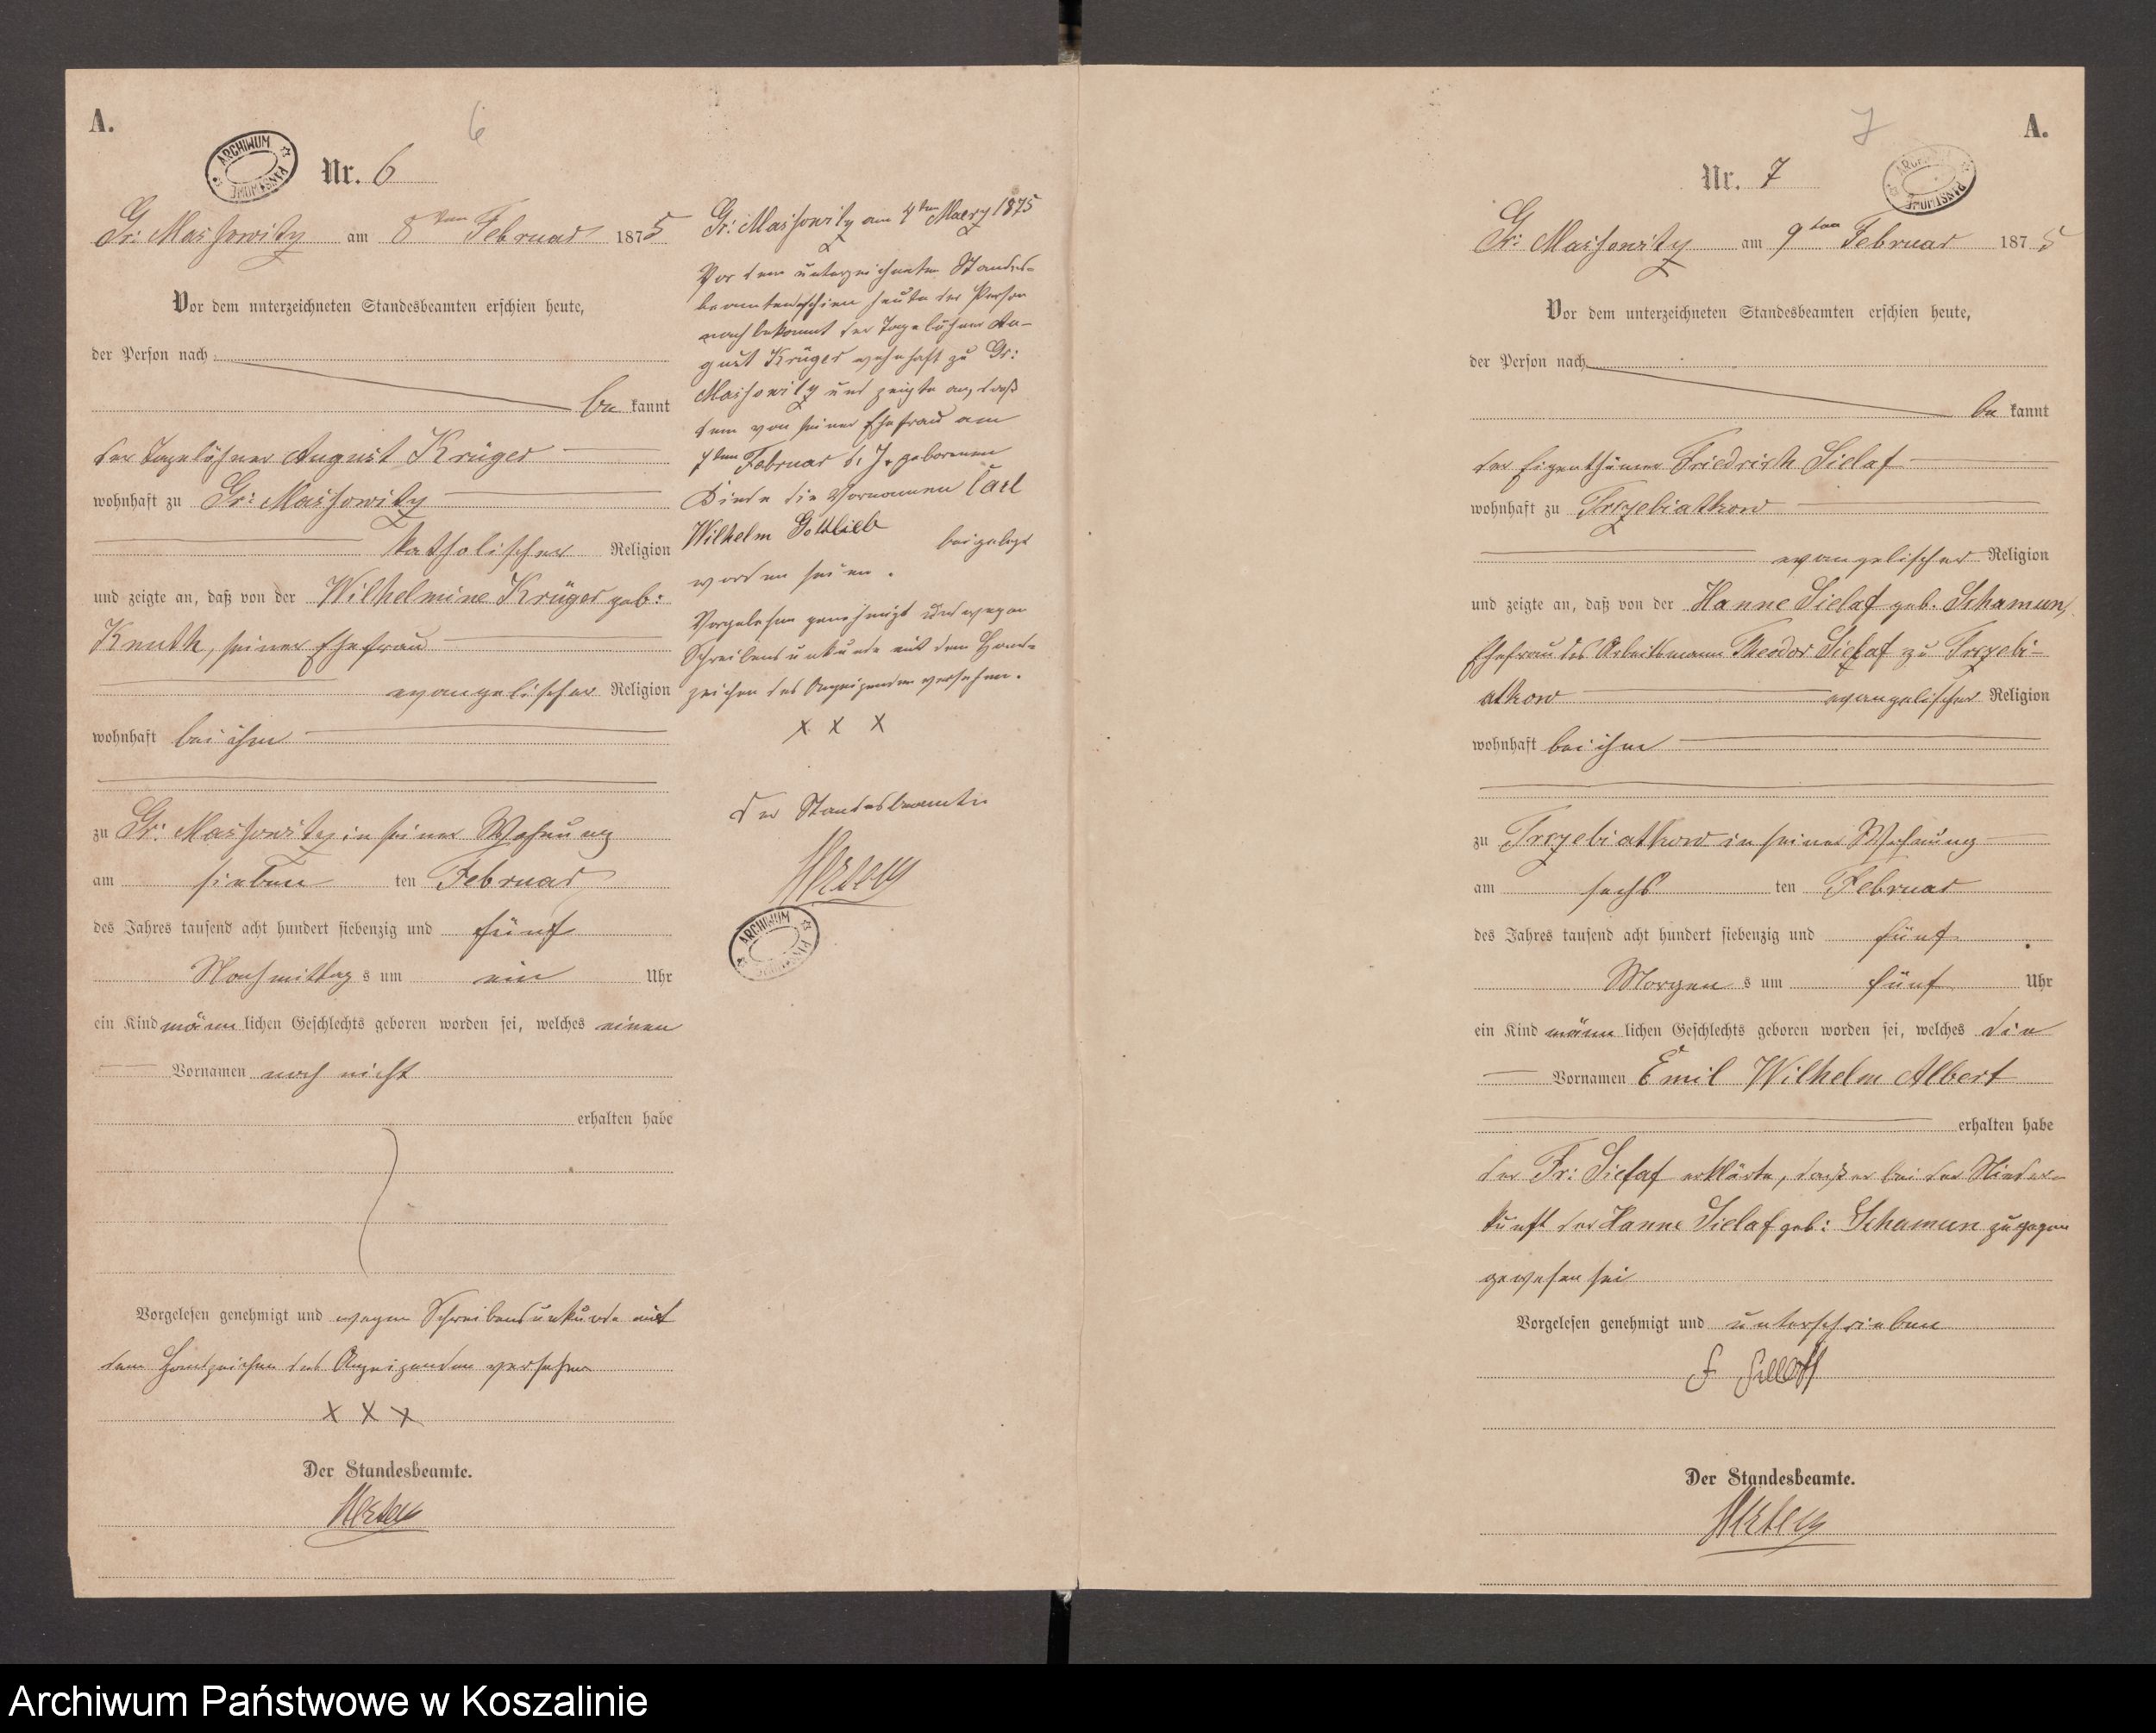 A.
6
ARCHIWUM PAŃSTWOWE
Nr. 6
Gr: Massowitz am 8ten Februar 1875
Vor dem unterzeichneten Standesbeamten erschien heute,
der Person nach
be kannt
der Tagelöhner August Krüger
wohnhaft zu Gr: Massowitz
katholischer Religion
und zeigte an, daß von der Wilhelmine Krüger geb:
Knuth, seiner Ehefrau
evangelischer Religion
wohnhaft bei ihm
zu Gr: Massowitz in seiner Wohnung
am sieben ten Februar
des Jahres tausend acht hundert siebenzig und fünf
Nachmittag s um ein Uhr
ein Kind männ lichen Geschlechts geboren worden sei, welches einen
Vornamen noch nicht
erhalten habe
Vorgelesen genehmigt und wegen Schreibensunkunde mit
dem Handzeichen des Anzeigenden versehen
X X X
Der Standesbeamte.
Gr: Massowitz am 4ten Maerz 1875
Vor dem unterzeichneten Standes-
beamten erschien heute der Person
nach bekannt der Tagelöhner Au-
gust Krüger wohnhaft zu Gr:
Massowitz und zeigte an, daß
dem von seiner Ehefrau am
7ten Februar d. J. geborenen
Kinde die Vornamen Carl
Wilhelm Gottlieb beigelegt
worden seien.
Vorgelesen genehmigt und wegen
Schreibensunkunde mit dem Hand-
zeichen des Anzeigenden versehen.
X X X
Der Standesbeamte
ARCHIWUM PAŃSTWOWE
A.
7
ARCHIWUM PAŃSTWOWE
Nr. 7
Gr: Massowitz am 9ten Februar 1875
Vor dem unterzeichneten Standesbeamten erschien heute,
der Person nach
be kannt
der Eigenthümer Friedrich Sielaf
wohnhaft zu Trzebiatkow
evangelischer Religion
und zeigte an, daß von der Hanne Sielaf geb. Schamun,
Ehefrau des Arbeitsmann Theodor Sielaf zu Trzebi-
atkow evangelischer Religion
wohnhaft bei ihm
zu Trzebiatkow in seiner Wohnung
am sechs ten Februar
des Jahres tausend acht hundert siebenzig und fünf
Morgen s um fünf Uhr
ein Kind männ lichen Geschlechts geboren worden sei, welches die
Vornamen Emil Wilhelm Albert
erhalten habe
der Fr: Sielaf erklärte, daß er bei der Nieder-
kunft der Hanne Sielaf geb: Schamun zugegen
gewesen sei
Vorgelesen genehmigt und unterschrieben
Der Standesbeamte.
Archiwum Państwowe w Koszalinie